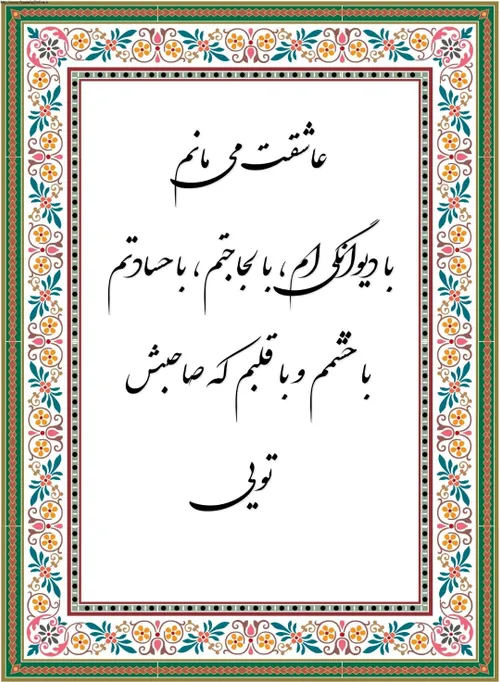 عاشقت می مانم
با دیوانگی ام ، با لجاجتم ، با حسادتم
با خشمم و با قلبم که صاحبش
تویی